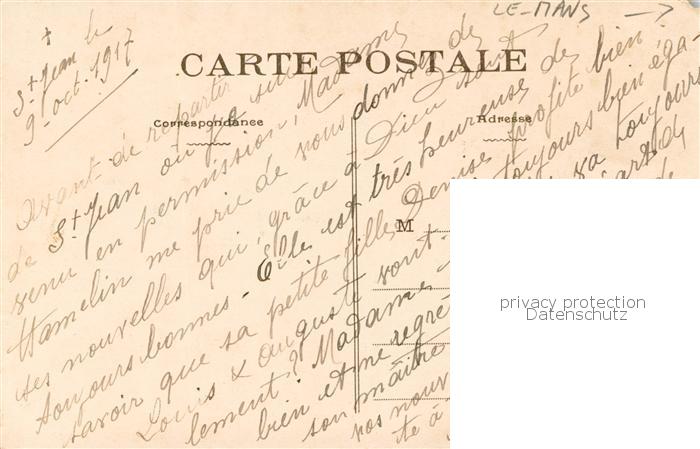 LE-MANS →
St Jean le
9 oct. 1917
CARTE POSTALE
Correspondance
Adresse
M
Avant de repartir
de St Jean où je suis
venu en permission, Madame
Hamelin me prie de vous donner de
ses nouvelles qui, grâce à Dieu sont
toujours bonnes - Elle est très heureuse de
savoir que sa petite fille Denise profite bien.
Louis & Auguste vont- toujours bien éga-
lement? Madame va toujours
bien et me
son maître
vos nouv
te à
privacy protection
Datenschutz